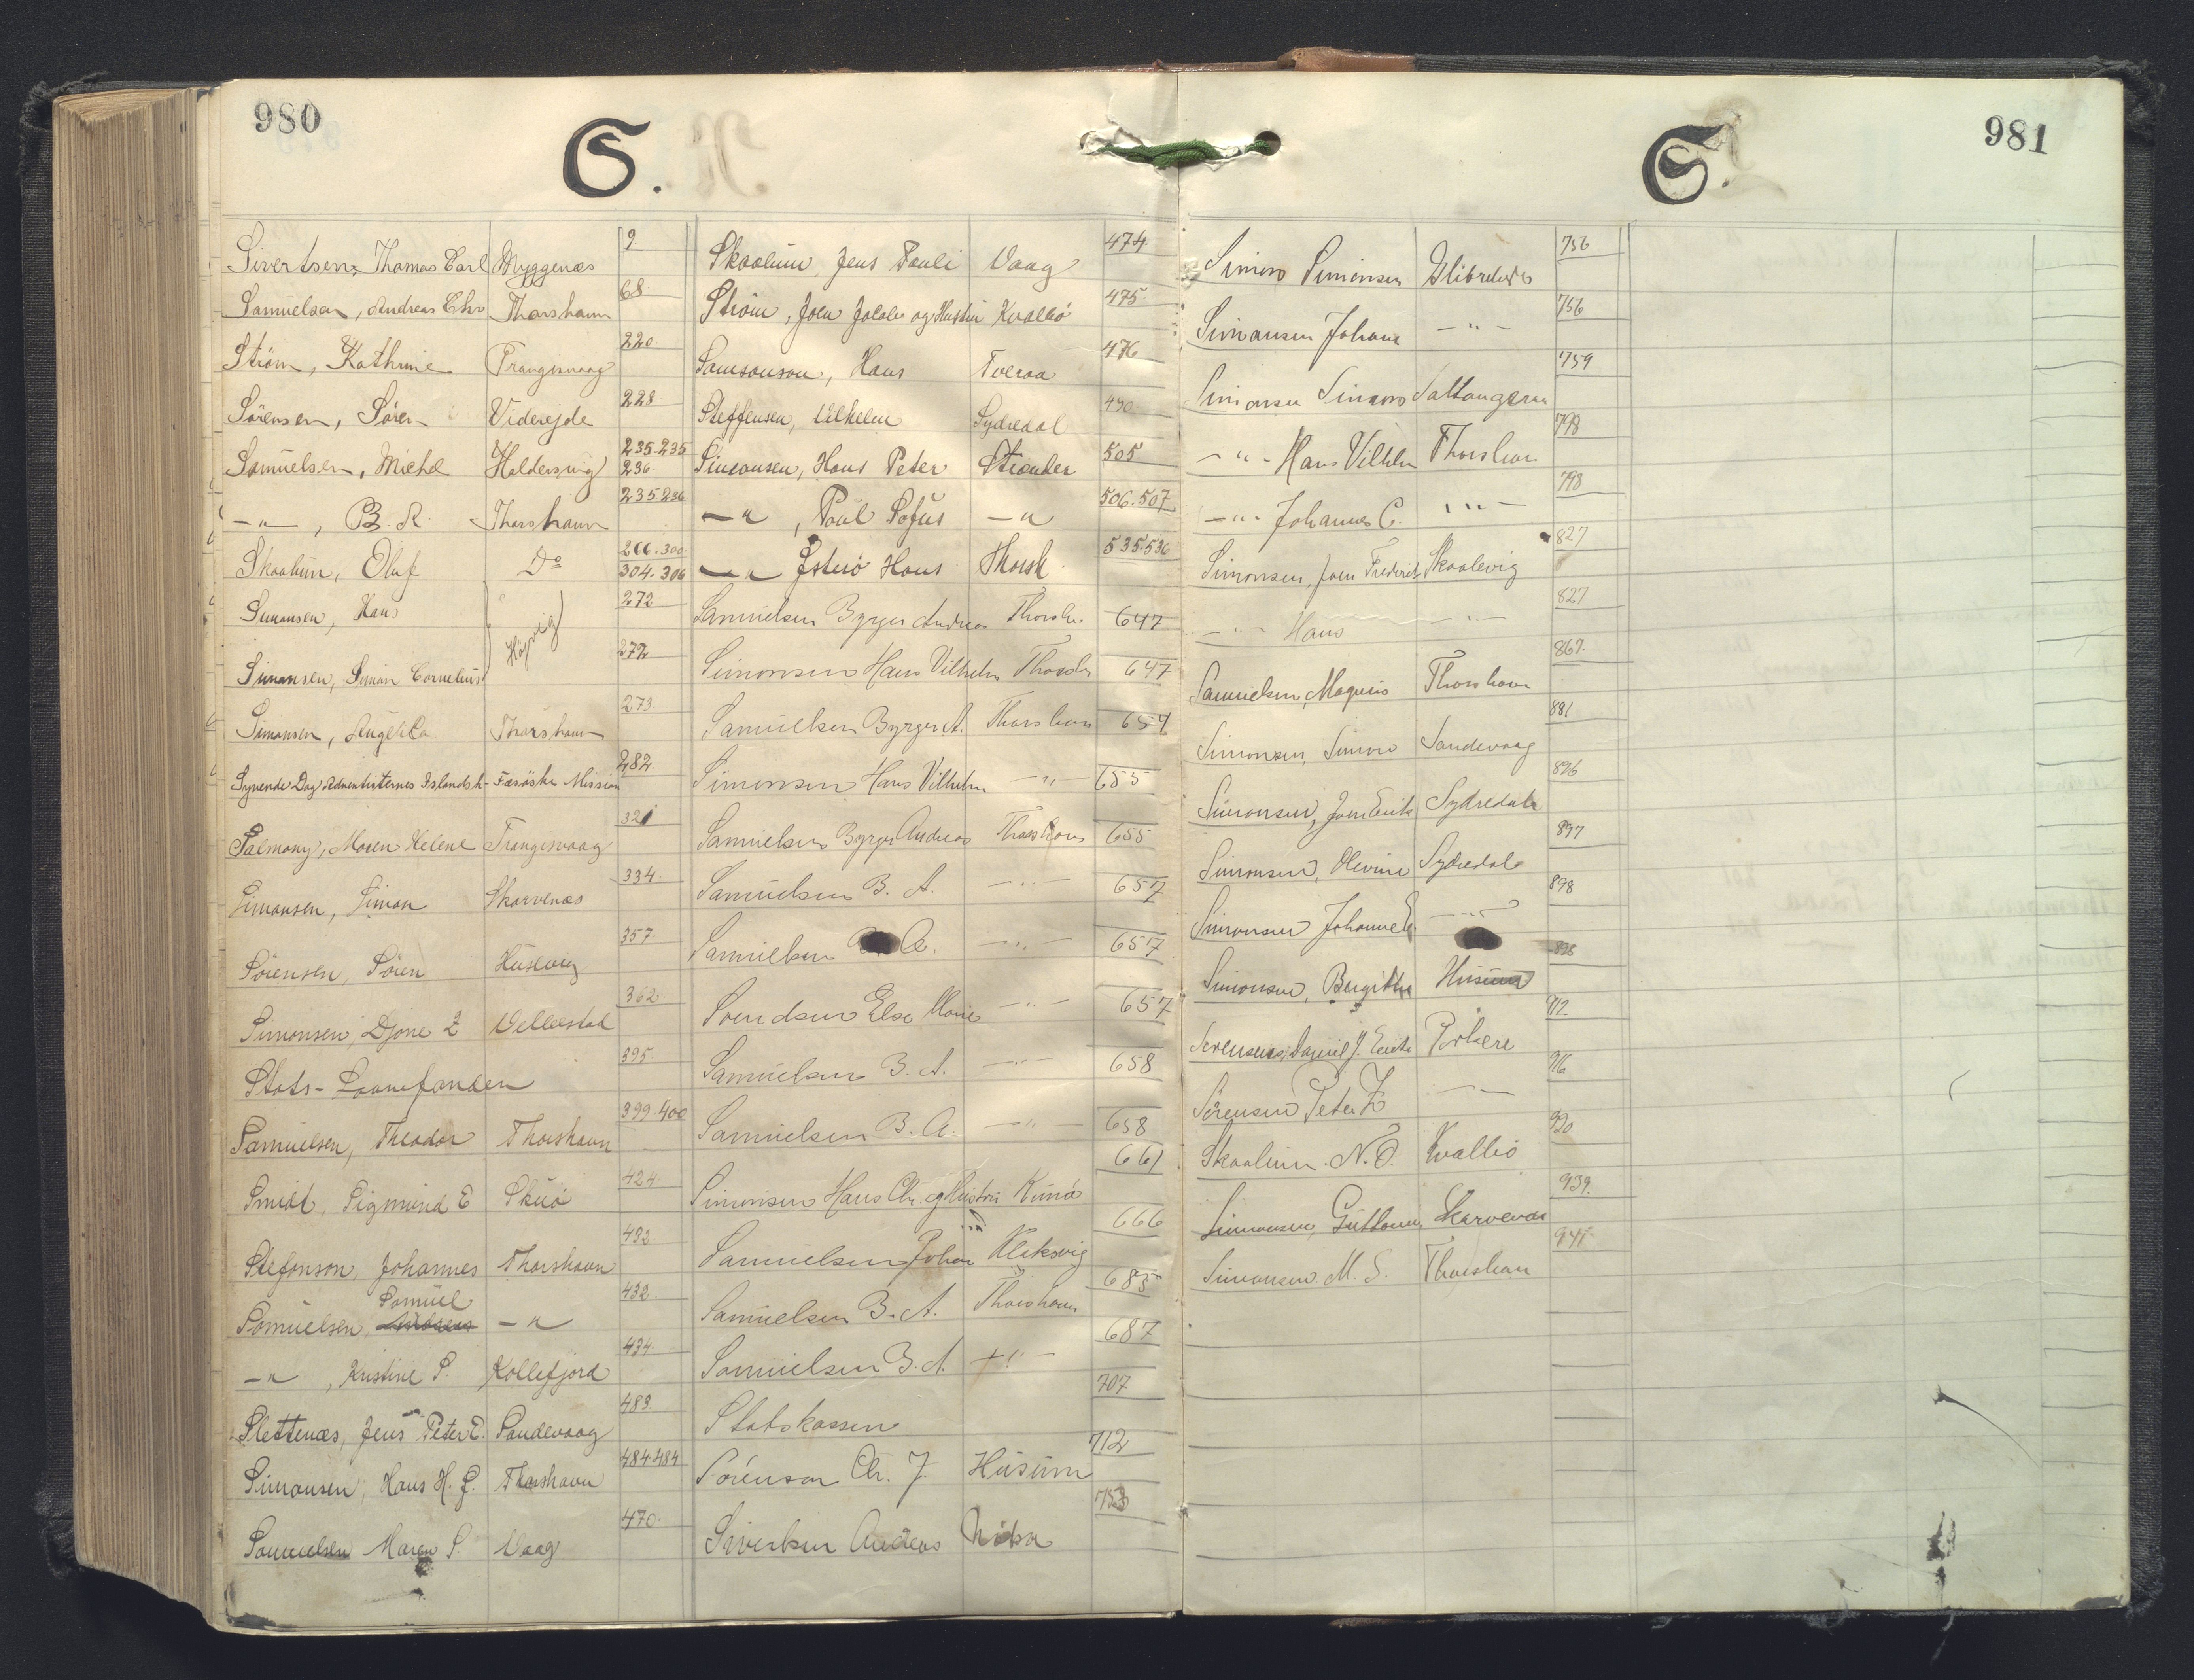 980
S.
Sivertsen, Thomas Carl Myggenæs 9
Samuelsen, Andreas Chr Thorshavn 68
Ström, Kathrine Trangisvaag 220
Sörensen, Sören Viderejde 228
Samuelsen, Michel Haldersvig 235.235 236
-"-, B. A. Thorshavn 235 236
Skaalum, Oluf Do 266.300. 304.306
Simonsen, Hans Høyvig 272
Simonsen, Simon Cornelius 272
Simonsen, Thorshavn 273.
Syvende Dag Adventisternes Islandsk-Færöske Mission 282.
Salmony, Maren Helene Trangisvaag 321
Simonsen, Simon Skarvenæs 334.
Sörensen, Sören Husevig 357.
Simonsen, Djone Z Velbestad 362.
Stats-Laanefonden 395.
Samuelsen, Theodor Thorshavn 399.400
Smidt, Sigmund E Skuö 424
Stefonson, Johannes Thorshavn 432
Samuelsen, Samuel -"- 432.
-"-, Kristine S. Kollefjord 434.
Slettenæs, Jens Peter E. Sandevaag 483.
Simonsen, Hans H. J. Thorshavn 484.484
Samuelsen Maren S. Vaag 470.
Skaalum, Jens Pauli Vaag 474
Ström, Joen Jakob og Hustru Kvalbö 475
Samsonson, Hans Tveraa 476
Steffensen, Vilhelm Sydredal 490.
Simonsen, Hans Peter Strender 505
-"-, Poul Sofus -"- 506.507
-"- Österö Hans Thorsh 535.536
Samuelsen Byrger Andreas Thorsh. 647
Simonsen Hans Vilhelm Thorsh 647
Samuelsen Byrger A. Thorshavn 654
Simonsen Hans Vilhelm -"- 655
Samuelsen Byrger Andreas Thorshavn 655
Samuelsen B. A. -"- 657
Samuelsen A. -"- 657
Svendsen Else Marie -"- 657
Samuelsen B. A. -"- 658
Samuelsen B. A. -"- 658
Simonsen Hans Chr. og Hustru Kunö 661
Samuelsen Johan Klaksvig 666
Samuelsen B. A. Thorshavn 685
Samuelsen B. A. -"- 687
Statskassen 707
Sörenson Chr. J. Husum 712
Sivertsen Andreas 753
S.
981
Simon Simonsen Glibrebjerg 756
Simonsen Johan -"- 756
Simonsen Simon Saltangeraa 759
-"- Hans Vilhelm Thorshavn 798
-"- Johannes C. -"- 798
Simonsen, Joen Frederik Skaalevig 827
-"- Hans -"- 827
Samuelsen, Magnus Thorshavn 867.
Simonsen, Simon Sandevaag 881
Simonsen, Joen Eirik Sydredal 896
Simonsen, Olevine Sydredal 897
Simonsen Johanne E -"- 898
Simonsen, Birgitte Husum 898
Sörensen, Daniel J. Eirik Porkere 912
Sörensen Peter Z -"- 916
Skaalum. N. O. Kvalbö 920
Simonsen, Guttorm Skarvenæs 939.
Simonsen M. S. Thorshavn 941